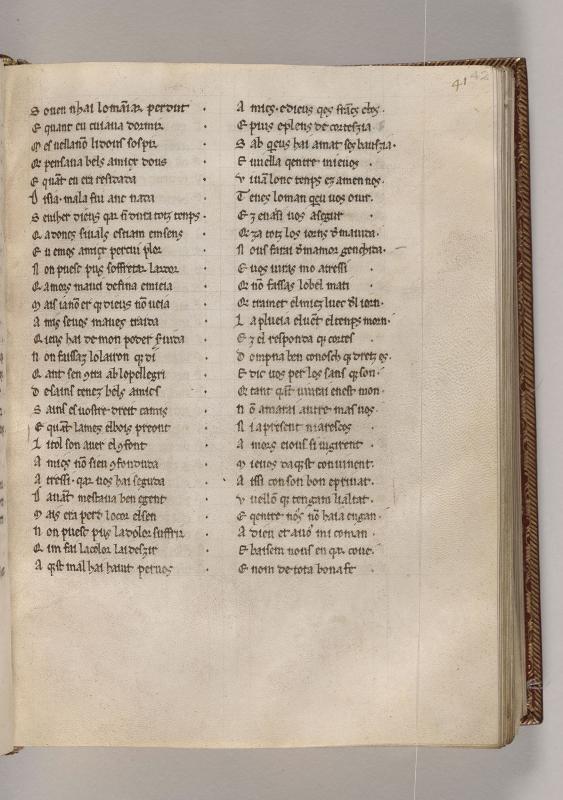 41 42
S ouen nhai lo maniar perdut
E quant eu cuiaua dormir
M es uellano li dous sospir
E pensaua bels amicx dous
E quāt eu era residada
D isia mala fui anc nada
S euher dieus qar fi dura totz temps
Q adones siuals estiam emsens
E u emos amicx percui plor
N on puesc pus soffretar lardor
E amors maucu defina enueia
M ais iano er qe dieus nō ueia
A mis seuos maues traida
Q ieus hai de mon poder seruida
N on faissaz lo lairon qe di
Q ant sen ua ab lo pellegri
D esains tenez bels amics
S ains es uostre dreit camis
E quāt lames el bois preont
L i tol son auer el 9font
A micx nō sien 9fonduda
A tressi qar uos hai seguda
D auāt mestaua ben e gent
M ais era perd locor el sen
N on puesc pus la dolor suffrir
E im fai la color laidezir
A qst mal hai haut per uos
A micx e dieus qes francs e bos
E pius e plens de cortezia
S ab qeus hai amat ses bauzia
E uuella qentre mi e uos
V iuā lonc temps ez amen nos
T enes loman qeu uos our
E z enassi uos asegur
E za totz los iorns de ma uida
N ous farai de mamor genchida
E uos iuras mo atressi
E nō fassas lo bel mati
E tramet el nuez luec del iorn
L a plueia el uēt el temps morn
E z el respondra qe cortes
D ompna ben conosch qe dretz es
E dic uos per los sans qe son
E tant qst uuitai en est mon
N ō amarai autre mas uos
N i apresent ni a rescos
A mors e ious si uigirent
M ieuos daqest conuinent
A issi con son bon e priuat
V uellō qe tengam lialtat
E qentre nos nō haia engan
A dieu et a uos mi coman
E baisem nous en qar coue
E nom de tota bona fe